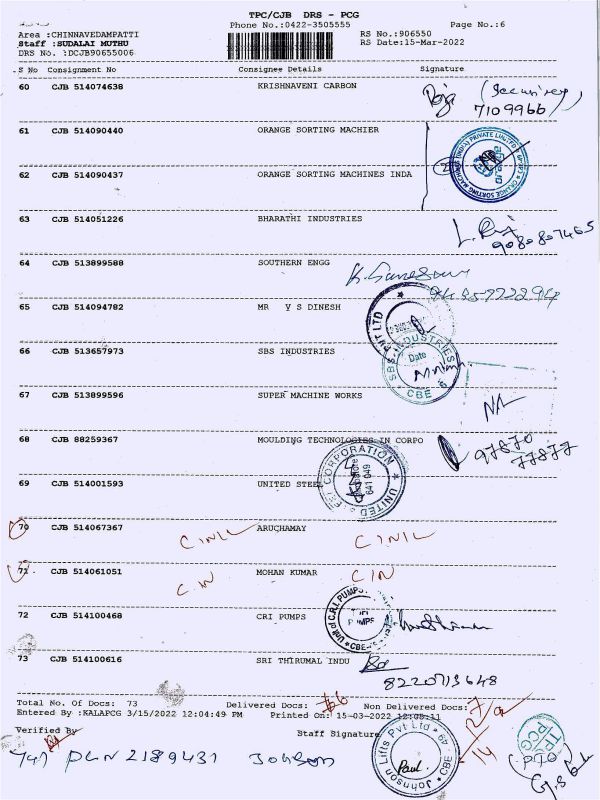 TPC/CJB DRS - PCG
Phone No.:0422-3505555 Page No.:6
Area :CHINNAVEDAMPATTI RS No.:906550
Staff :SUDALAI MUTHU RS Date:15-Mar-2022
DRS No. :DCJB90655006
S No Consignment No Consignee Details Signature
60 CJB 514074638 KRISHNAVENI CARBON
(Security)
7109966
61 CJB 514090440 ORANGE SORTING MACHIER
ORANGE SORTING MACHINES (INDIA) PRIVATE LIMITED
62 CJB 514090437 ORANGE SORTING MACHINES INDA
63 CJB 514051226 BHARATHI INDUSTRIES
9080807465
64 CJB 513899588 SOUTHERN ENGG
K. Ganesan
65 CJB 514094782 MR V S DINESH
PVT LTD
66 CJB 513657973 SBS INDUSTRIES
SBS INDUSTRIES
Date
CBE - 6
67 CJB 513899596 SUPER MACHINE WORKS
68 CJB 88259367 MOULDING TECHNOLOGIES IN CORPO
97870
77877
69 CJB 514001593 UNITED STEEL
CORPORATION
UNITED
641 049
70 CJB 514067367 ARUCHAMAY
71 CJB 514061051 MOHAN KUMAR
C/N C/N
72 CJB 514100468 CRI PUMPS
Unit of C.R.I. PUMPS
PUMPS
CBE
73 CJB 514100616 SRI THIRUMAL INDU
8220713648
Total No. Of Docs: 73 Delivered Docs: 66 Non Delivered Docs: 7
Entered By :KALAPCG 3/15/2022 12:04:49 PM Printed On: 15-03-2022 12:08:11
Verified By Staff Signature
PCN 2189431 Johnson
Johnson Lifts Pvt Ltd
CBE
Paul
TPC
PCG
(PTO)